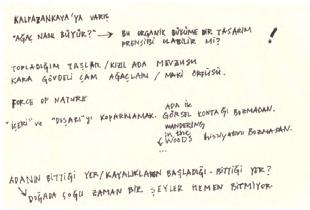 KALPAZANKAYA'YA VARIŞ
"AĞAÇ NASIL BÜYÜR?" → BU ORGANİK BÜYÜME BİR TASARIM
PRENSİBİ OLABİLİR Mİ? !
TOPLADIĞIM TAŞLAR / KIZIL ADA MEVZUSU
KARA GÖVDELİ ÇAM AĞAÇLARI / MAKİ ÖRTÜSÜ.
FORCE OF NATURE
"İÇERİ" VE "DIŞARI"YI KOPARMAMAK. ADA İLE
GÖRSEL KONTAĞI BOZMADAN.
WANDERING
in the
WOODS hissiyatını BOZMADAN.
...
ADANIN BİTTİĞİ YER / KAYALIKLARIN BAŞLADIĞI - BİTTİĞİ YER?
DOĞADA ÇOĞU ZAMAN BİR ŞEYLER HEMEN BİTMİYOR